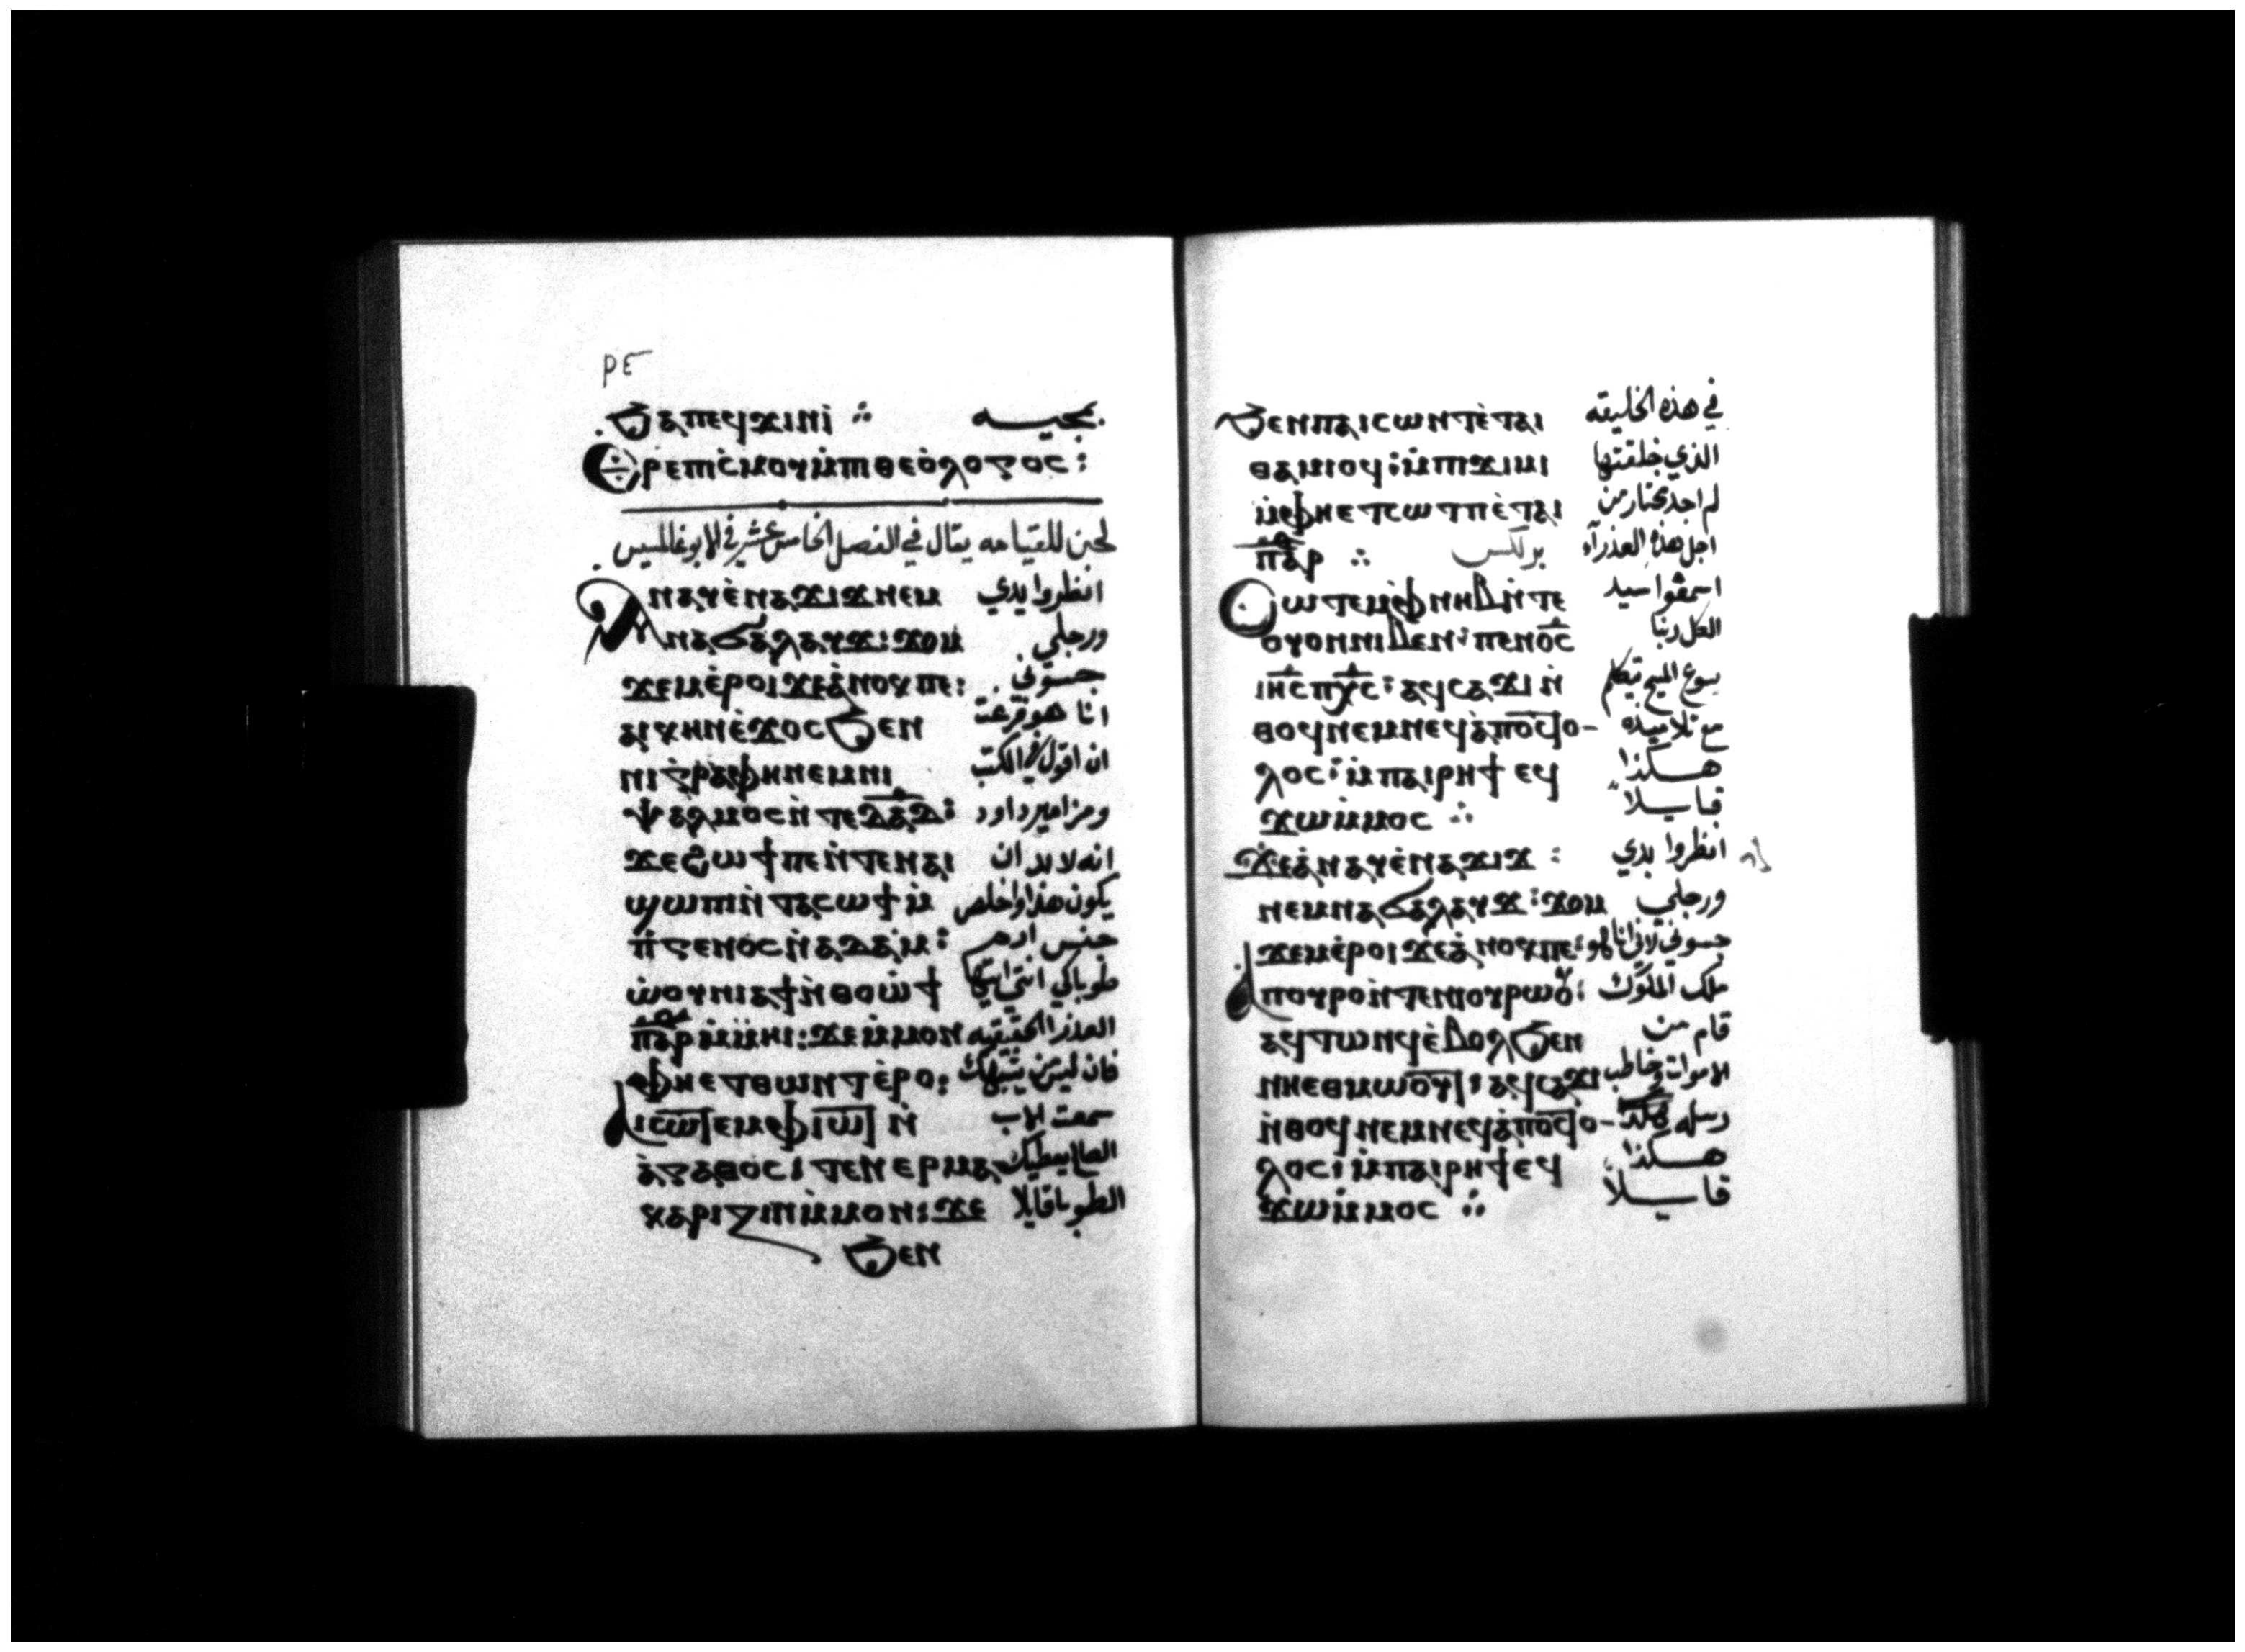 ⲣⲉ
ϧⲁⲡⲉϥϫⲓⲛⲓ̀ ⁘ بمجيه
ⲑⲣⲉⲡⲓⲥ̀ⲙⲟⲩⲙ̀ⲡⲓⲑⲉⲟ̀ⲗⲟⲅⲟⲥ:
لحن للقيامه يقال في الفصل الخامس عشر في الابوغالمسيس
ⲁⲛⲁⲩⲉ̀ⲛⲁϫⲓϫⲛⲉⲙ انظروا يدي
ⲛⲁϭⲁⲗⲁⲩϫ:ϫⲟⲙ ورجلي
ϫⲉⲙⲉ̀ⲣⲟⲓϫⲉⲁ̀ⲛⲟⲕⲡⲉ: جسوني
ⲁⲓⲭⲏⲛⲉ̀ϫⲟⲥϧⲉⲛ انا هو فرغت
ⲛⲓⲅ̀ⲣⲁⲫⲏⲛⲉⲙⲛⲓ ان اقول في الكتب
ⲯⲁⲗⲙⲟⲥⲛ̀ⲧⲉⲇⲁⲇ: ومزامير داود
ϫⲉϩⲱϯⲡⲉⲛ̀ⲧⲉⲛⲁⲓ انه لا بد ان
ϣⲱⲡⲓⲛ̀ⲧⲁⲥⲱϯⲙ̀ يكون هذا واخلص
ⲡ̀ⲅⲉⲛⲟⲥⲛ̀ⲁⲇⲁⲙ: جنس ادم
ⲱ̀ⲟⲩⲛⲓⲁϯⲛ̀ⲑⲟⲱ̀ϯ طوباكي انتي ايتها
ⲡⲁⲣⲙ̀ⲙⲏⲓ:ϫⲉⲙ̀ⲙⲟⲛ العذرا الحقيقيه
ⲫⲏⲉⲧⲑⲱⲛⲧⲉ̀ⲣⲟ: فان ليس من يشبهك
ⲁⲓⲥⲱⲧⲉⲙⲫⲓⲱⲧ ⲛ̀ سمعت الاب
ⲁ̀ⲅⲁⲑⲟⲥ:ⲧⲉⲛⲉⲣⲙⲁ الصالح يعطيك
ⲕⲁⲣⲓⲍⲓⲛⲙ̀ⲙⲟⲛ:ϫⲉ الطوبا قايلا
ϧⲉⲛ
ϧⲉⲛⲡⲁⲓⲥⲱⲛⲧⲉ̀ⲧⲁⲓ في هذه الخليقه
ⲑⲁⲙⲓⲟϥ:ⲙ̀ⲡⲓϫⲓⲙⲓ الذي خلقتها
ⲙ̀ⲫⲏⲉⲧⲥⲱⲧⲡⲉ̀ⲧⲁⲓ لم اجد مختار من
ⲡⲁⲣ ⁘ برلكس اجل هذه العذرآء
ⲥⲱⲧⲉⲙⲫⲛⲏⲃⲛ̀ⲧⲉ اسمعوا سيد
ⲟⲩⲟⲛⲛⲓⲃⲉⲛ:ⲡⲉⲛⲟ̅ⲥ̅ الكل ربنا
ⲓⲏ̅ⲥ̅ⲡⲭ̅ⲥ̅:ⲁϥⲥⲁϫⲓ ⲛ̀ يسوع المسيح تكلم
ⲑⲟϥⲛⲉⲙⲛⲉϥⲁ̀ⲡⲟⲥⲧⲟ- مع تلاميذه
ⲗⲟⲥ:ⲙ̀ⲡⲁⲓⲣⲏϯ ⲉϥ هكذا
ϫⲱⲙ̀ⲙⲟⲥ ⁘ قايلاً
ϫⲉⲁ̀ⲛⲁⲩⲉ̀ⲛⲁϫⲓϫ : انظروا يدي
ⲛⲉⲙⲛⲁϭⲁⲗⲁⲩϫ:ϫⲟⲙ ورجلي
ϫⲉⲙⲉ̀ⲣⲟⲓϫⲉⲁ̀ⲛⲟⲕⲡⲉ: جسوني لاني انا هو
ⲁⲡⲟⲩⲣⲟⲛ̀ⲧⲉⲛⲓⲟⲩⲣⲱⲟⲩ: ملك الملوك
ⲁϥⲧⲱⲛϥⲉ̀ⲃⲟⲗϧⲉⲛ قام من
ⲛⲏⲉⲑⲙⲱⲟⲩⲧ:ⲁϥⲥⲁϫⲓ الاموات وخاطب
ⲛ̀ⲑⲟϥⲛⲉⲙⲛⲉϥⲁ̀ⲡⲟⲥⲧⲟ- رسله
ⲗⲟⲥ:ⲙ̀ⲡⲁⲓⲣⲏϯⲉϥ هكذا
ϫⲱⲙ̀ⲙⲟⲥ ⁘ قايلاً